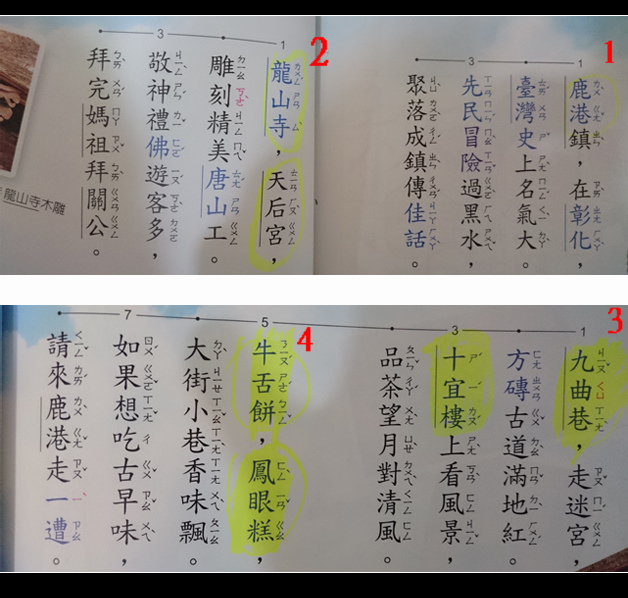 1
鹿港鎮，在彰化，
臺灣史上名氣大。
先民冒險過黑水，
聚落成鎮傳佳話。
1
3
2
龍山寺，天后宮，
雕刻精美唐山工。
敬神禮佛遊客多，
拜完媽祖拜關公。
1
3
龍山寺木雕
3
九曲巷，走迷宮，
方磚古道滿地紅。
十宜樓上看風景，
品茶望月對清風。
1
3
4
牛舌餅，鳳眼糕，
大街小巷香味飄。
如果想吃古早味，
請來鹿港走一遭。
5
7